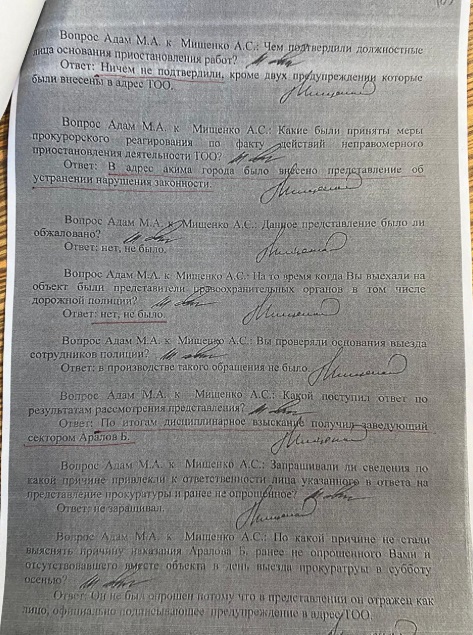 Вопрос Адам М.А. к Мищенко А.С.: Чем подтвердили должностные
лица основания приостановления работ?
Ответ: Ничем не подтвердили, кроме двух предупреждений которые
были внесены в адрес ТОО.
Вопрос Адам М.А. к Мищенко А.С.: Какие были приняты меры
прокурорского реагирования по факту действий неправомерного
приостановления деятельности ТОО?
Ответ: В адрес акима города было внесено представление об
устранении нарушения законности.
Вопрос Адам М.А. к Мищенко А.С.: Данное представление было ли
обжаловано?
Ответ: нет, не было.
Вопрос Адам М.А. к Мищенко А.С.: На то время когда Вы выехали на
объект были представители правоохранительных органов в том числе
дорожной полиции?
Ответ: нет, не было.
Вопрос Адам М.А. к Мищенко А.С.: Вы проверяли основания выезда
сотрудников полиции?
Ответ: в производстве такого обращения не было.
Вопрос Адам М.А. к Мищенко А.С.: Какой поступил ответ по
результатам рассмотрения представления?
Ответ: По итогам дисциплинарное взыскание получил заведующий
сектором Аралов Б.
Вопрос Адам М.А. к Мищенко А.С.: Запрашивали ли сведения по
какой причине привлекли к ответственности лица указанного в ответа на
представление прокуратуры и ранее не опрошенное?
Ответ: не заращивал.
Вопрос Адам М.А. к Мищенко А.С.: По какой причине не стали
выяснять причину наказания Аралова Б. ранее не опрошенного Вами и
отсутствовавшего вместе объекта в день выезда прокуратруы в субботу
осенью?
Ответ: Он не был опрошен потому что в представлении он отражен как
лицо, официально подписывающее предупреждение в адрес ТОО.